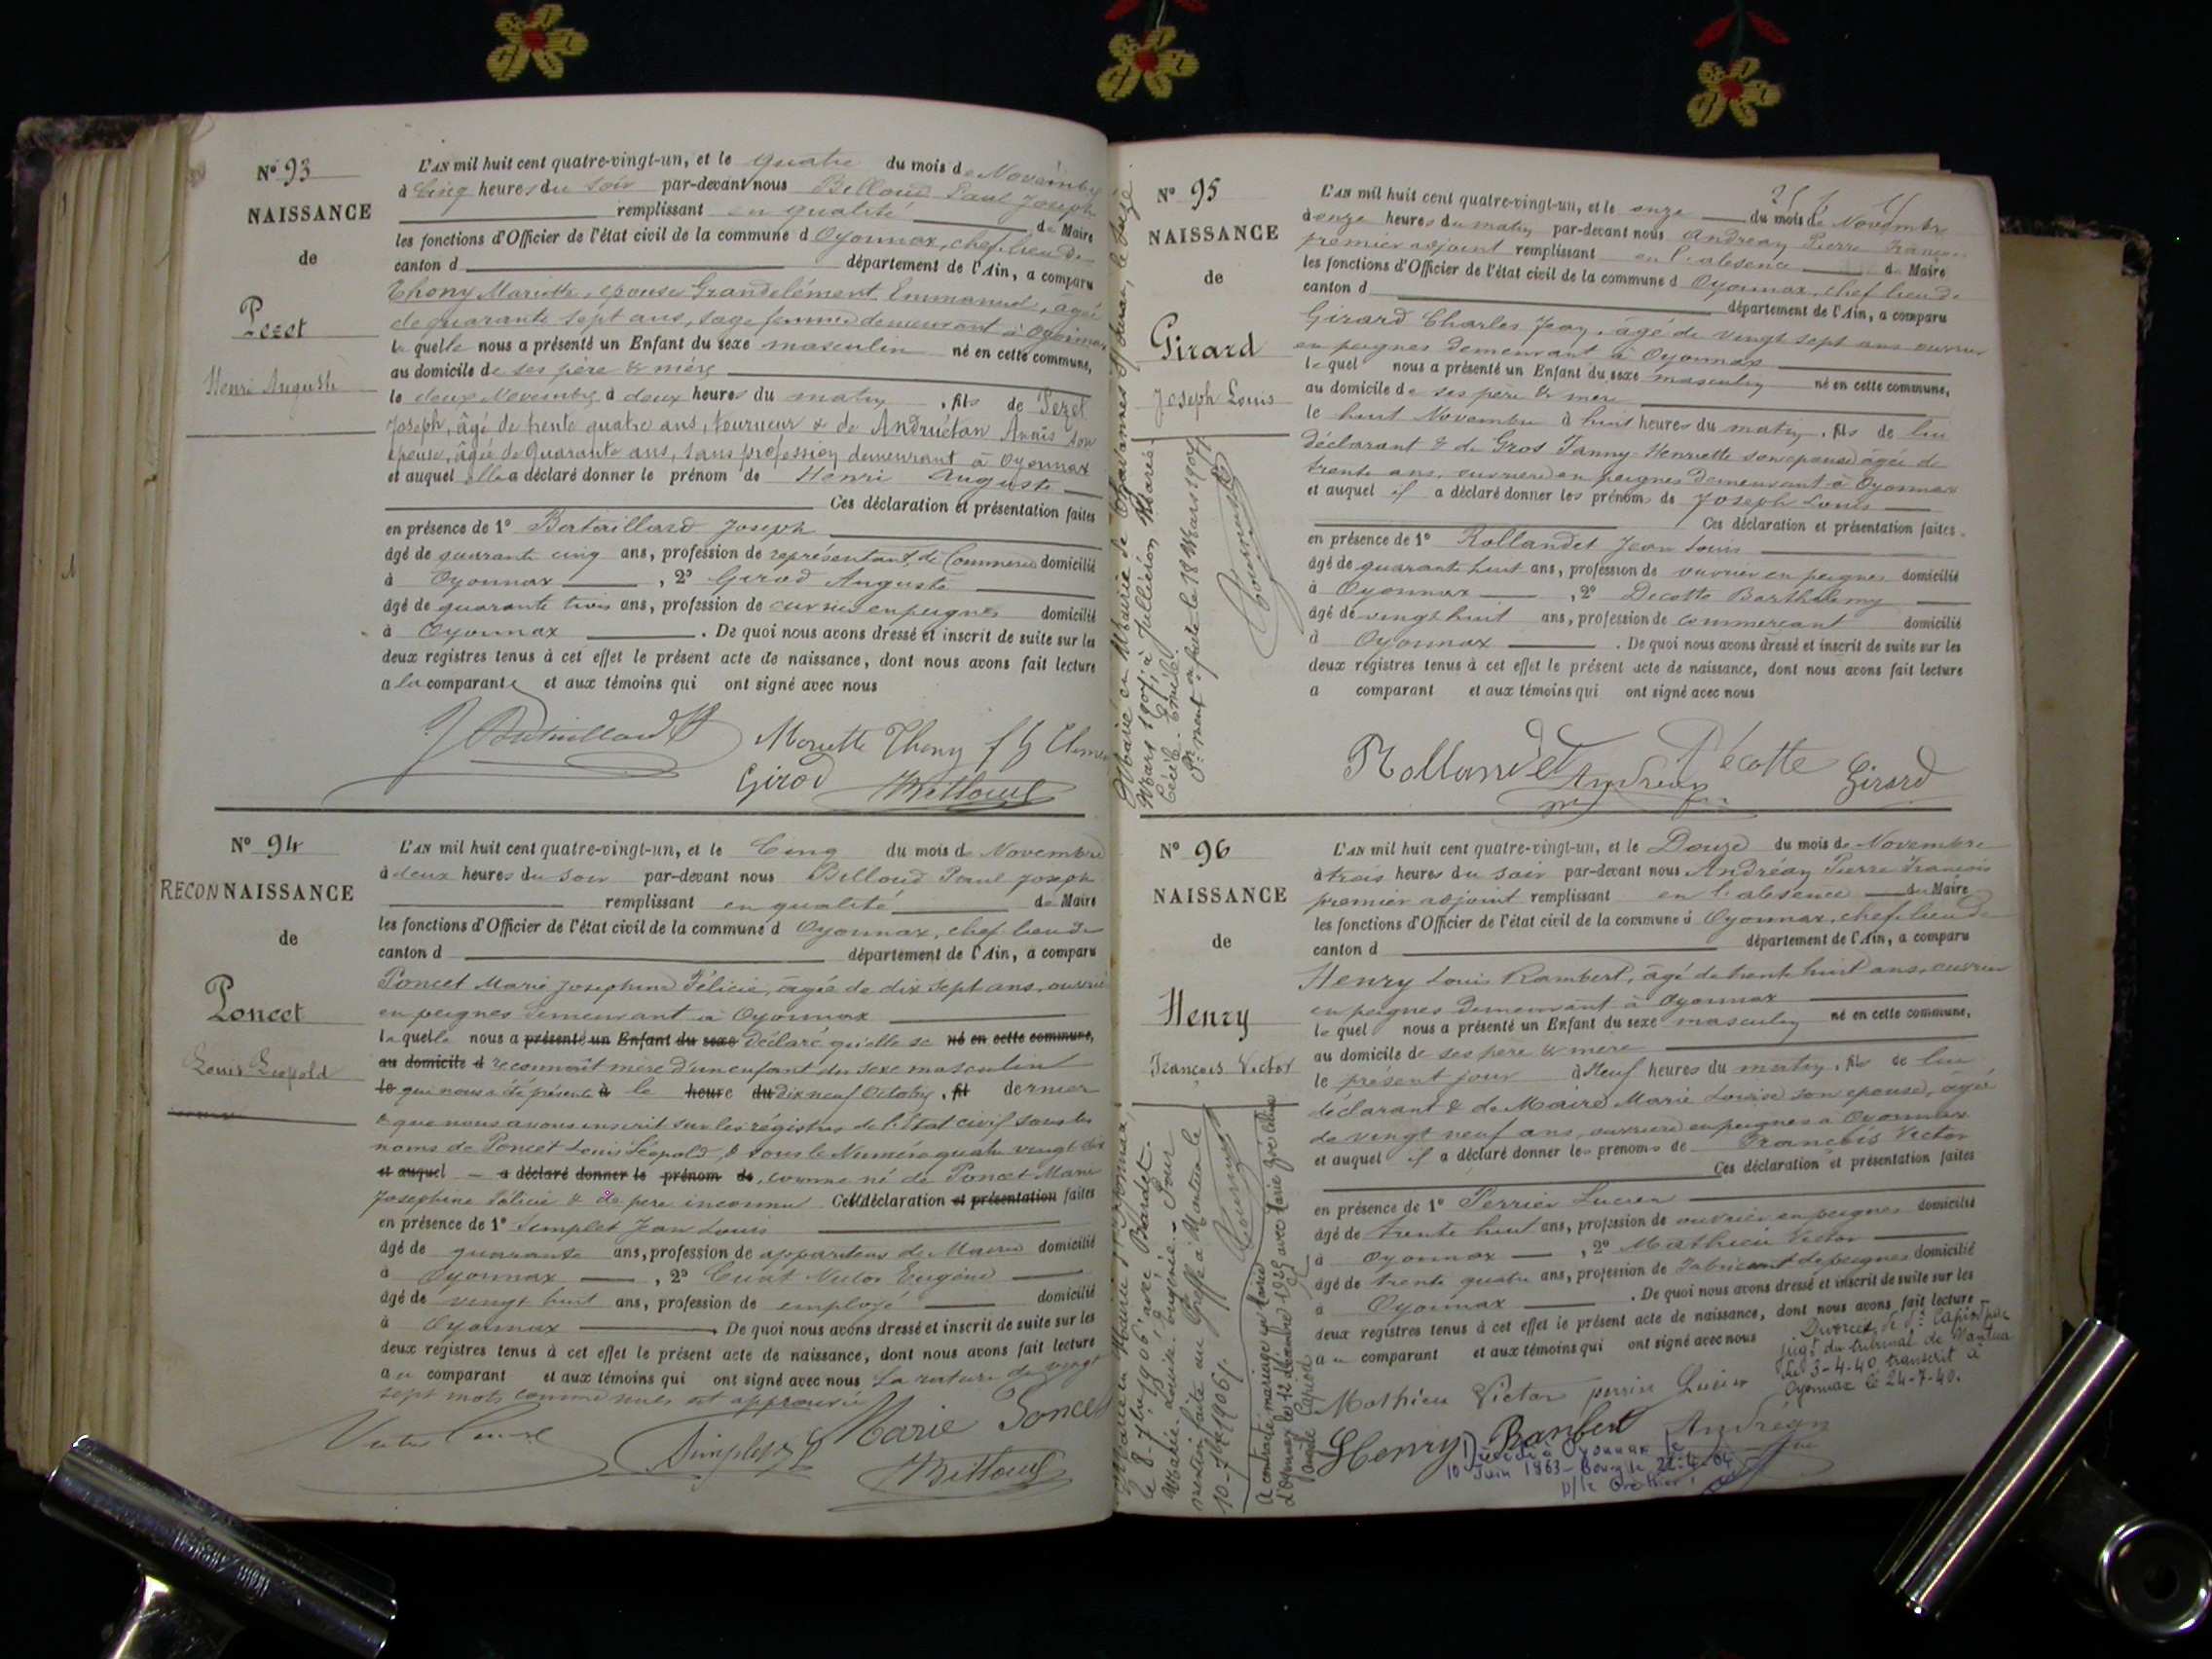 N° 93
NAISSANCE
de
Pezet
Henri Auguste
L'AN mil huit cent quatre-vingt-un, et le quatre du mois de Novembre
à Cinq heures du soir par-devant nous Belloud Paul Joseph
remplissant en qualité de Maire
les fonctions d'Officier de l'état civil de la commune d Oyonnax, chef lieu de
canton d département de l'Ain, a comparu
Thony Mariette, épouse Grandclément Emmanuel, âgée
de quarante sept ans, sage femme demeurant à Oyonnax
la quelle nous a présenté un Enfant du sexe masculin né en cette commune,
au domicile de ses père & mère
le deux Novembre à deux heures du matin, fils de Pezet
Joseph, âgé de trente quatre ans, tourneur & de Andruétan Annis son
épouse, âgée de Quarante ans, sans profession demeurant à Oyonnax
et auquel elle a déclaré donner le prénom de Henri Auguste
Ces déclaration et présentation faites
en présence de 1° Bertaillard Joseph
âgé de quarante cinq ans, profession de représentant de Commerce domicilié
à Oyonnax , 2° Girod Auguste
âgé de quarante trois ans, profession de ouvrier en peignes domicilié
à Oyonnax . De quoi nous avons dressé et inscrit de suite sur les
deux registres tenus à cet effet le présent acte de naissance, dont nous avons fait lecture
a la comparante et aux témoins qui ont signé avec nous
Mariette Thony
Girod
N° 94
RECONNAISSANCE
de
Poncet
Louis Léopold
L'AN mil huit cent quatre-vingt-un, et le Cinq du mois de Novembre
à deux heures du soir par-devant nous Belloud Paul Joseph
remplissant en qualité de Maire
les fonctions d'Officier de l'état civil de la commune d Oyonnax, chef lieu de
canton d département de l'Ain, a comparu
Poncet Marie Josephine Félicie, âgée de dix sept ans, ouvrière
en peignes demeurant à Oyonnax
laquelle nous a présenté un Enfant du sexe déclaré qu'elle se né en cette commune,
au domicile d reconnaît mère d'un enfant du sexe masculin
le qui nous a été présenté à le heure du dix neuf Octobre, fil dernier
& que nous avons inscrit sur les régistres de l'Etat civil sous les
noms de Poncet Louis Léopold, & sous le Numéro quatre vingt dix
et auquel a déclaré donner le prénom de, comme né de Poncet Marie
Josephine Félicie & de père inconnu Cette déclaration et présentation faites
en présence de 1° Simplet Jean Louis
âgé de quarante ans, profession de appariteur de Mairie domicilié
à Oyonnax , 2° Cuat Victor Eugène
âgé de vingt huit ans, profession de employé domicilié
à Oyonnax . De quoi nous avons dressé et inscrit de suite sur les
deux registres tenus à cet effet le présent acte de naissance, dont nous avons fait lecture
a u comparant et aux témoins qui ont signé avec nous La rature de vingt
sept mots comme nuls est approuvée
Marie Poncet
N° 95
NAISSANCE
de
Girard
Joseph Louis
L'AN mil huit cent quatre-vingt-un, et le onze du mois de Novembre
à onze heures du matin par-devant nous Andréan Pierre François
premier adjoint remplissant en l'absence du Maire
les fonctions d'Officier de l'état civil de la commune d Oyonnax, chef lieu de
canton d département de l'Ain, a comparu
Girard Charles Jean, âgé de vingt sept ans ouvrier
en peignes demeurant à Oyonnax
lequel nous a présenté un Enfant du sexe masculin né en cette commune,
au domicile de ses père & mère
le huit Novembre à huit heures du matin, fils de lui
déclarant & de Gros Fanny Henriette son épouse âgée de
trente ans, ouvrière en peignes demeurant à Oyonnax
et auquel il a déclaré donner les prénoms de Joseph Louis
Ces déclaration et présentation faites
en présence de 1° Rollandet Jean Louis
âgé de quarante huit ans, profession de ouvrier en peignes domicilié
à Oyonnax , 2° Decotte Barthélemy
âgé de vingt huit ans, profession de commerçant domicilié
à Oyonnax . De quoi nous avons dressé et inscrit de suite sur les
deux registres tenus à cet effet le présent acte de naissance, dont nous avons fait lecture
a comparant et aux témoins qui ont signé avec nous
Rollandet Andréan Décotte Girard
Mars 1907, à Jullieron Marie
Cécile Emilie
greffe le 18 Mars 1907
N° 96
NAISSANCE
de
Henry
François Victor
L'AN mil huit cent quatre-vingt-un, et le Douze du mois de Novembre
à trois heures du soir par-devant nous Andréan Pierre François
premier adjoint remplissant en l'absence du Maire
les fonctions d'Officier de l'état civil de la commune d Oyonnax, chef lieu de
canton d département de l'Ain, a comparu
Henry Louis Rambert, âgé de trente huit ans, ouvrier
en peignes demeurant à Oyonnax
lequel nous a présenté un Enfant du sexe masculin né en cette commune,
au domicile de ses père & mère
le présent jour à Neuf heures du matin, fils de lui
déclarant & de Maire Marie Louise son épouse, âgée
de vingt neuf ans, ouvrière en peignes à Oyonnax
et auquel il a déclaré donner les prénoms de François Victor
Ces déclaration et présentation faites
en présence de 1° Perrier Lucien
âgé de trente huit ans, profession de ouvrier en peignes domicilié
à Oyonnax , 2° Mathieu Victor
âgé de trente quatre ans, profession de fabricant de peignes domicilié
à Oyonnax . De quoi nous avons dressé et inscrit de suite sur les
deux registres tenus à cet effet le présent acte de naissance, dont nous avons fait lecture
a u comparant et aux témoins qui ont signé avec nous
Divorcé de dte Capiod par
jugt du tribunal de Nantua
du 3-4-40 transcrit à
Oyonnax le 24-7-40.
Mathieu Victor perrier Lucien
Henry Rambert Andréan
Décédé à Oyonnax le
10 Juin 1963 - Bourg le 22-4-64
p/le Greffier
Marié en Mairie d'Oyonnax,
le 8-7bre 1906, avec Bardet
Marie Louise Eugénie. Pour
mention faite au Greffe à Nantua le
10-7bre 1906.
A contracté mariage en Mairie
d'Oyonnax le 12 décembre 1925 avec Marie Zoé Célina
Capiod